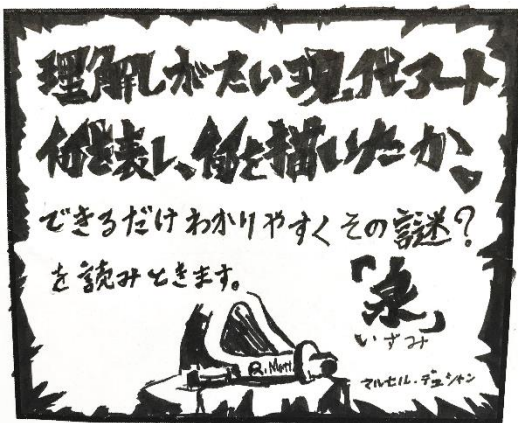 理解しがたい現代アート
何を表し、何を描いたか。
できるだけわかりやすくその謎?
を読みときます。
「泉」
いずみ
R.Mutt
マルセル・デュシャン